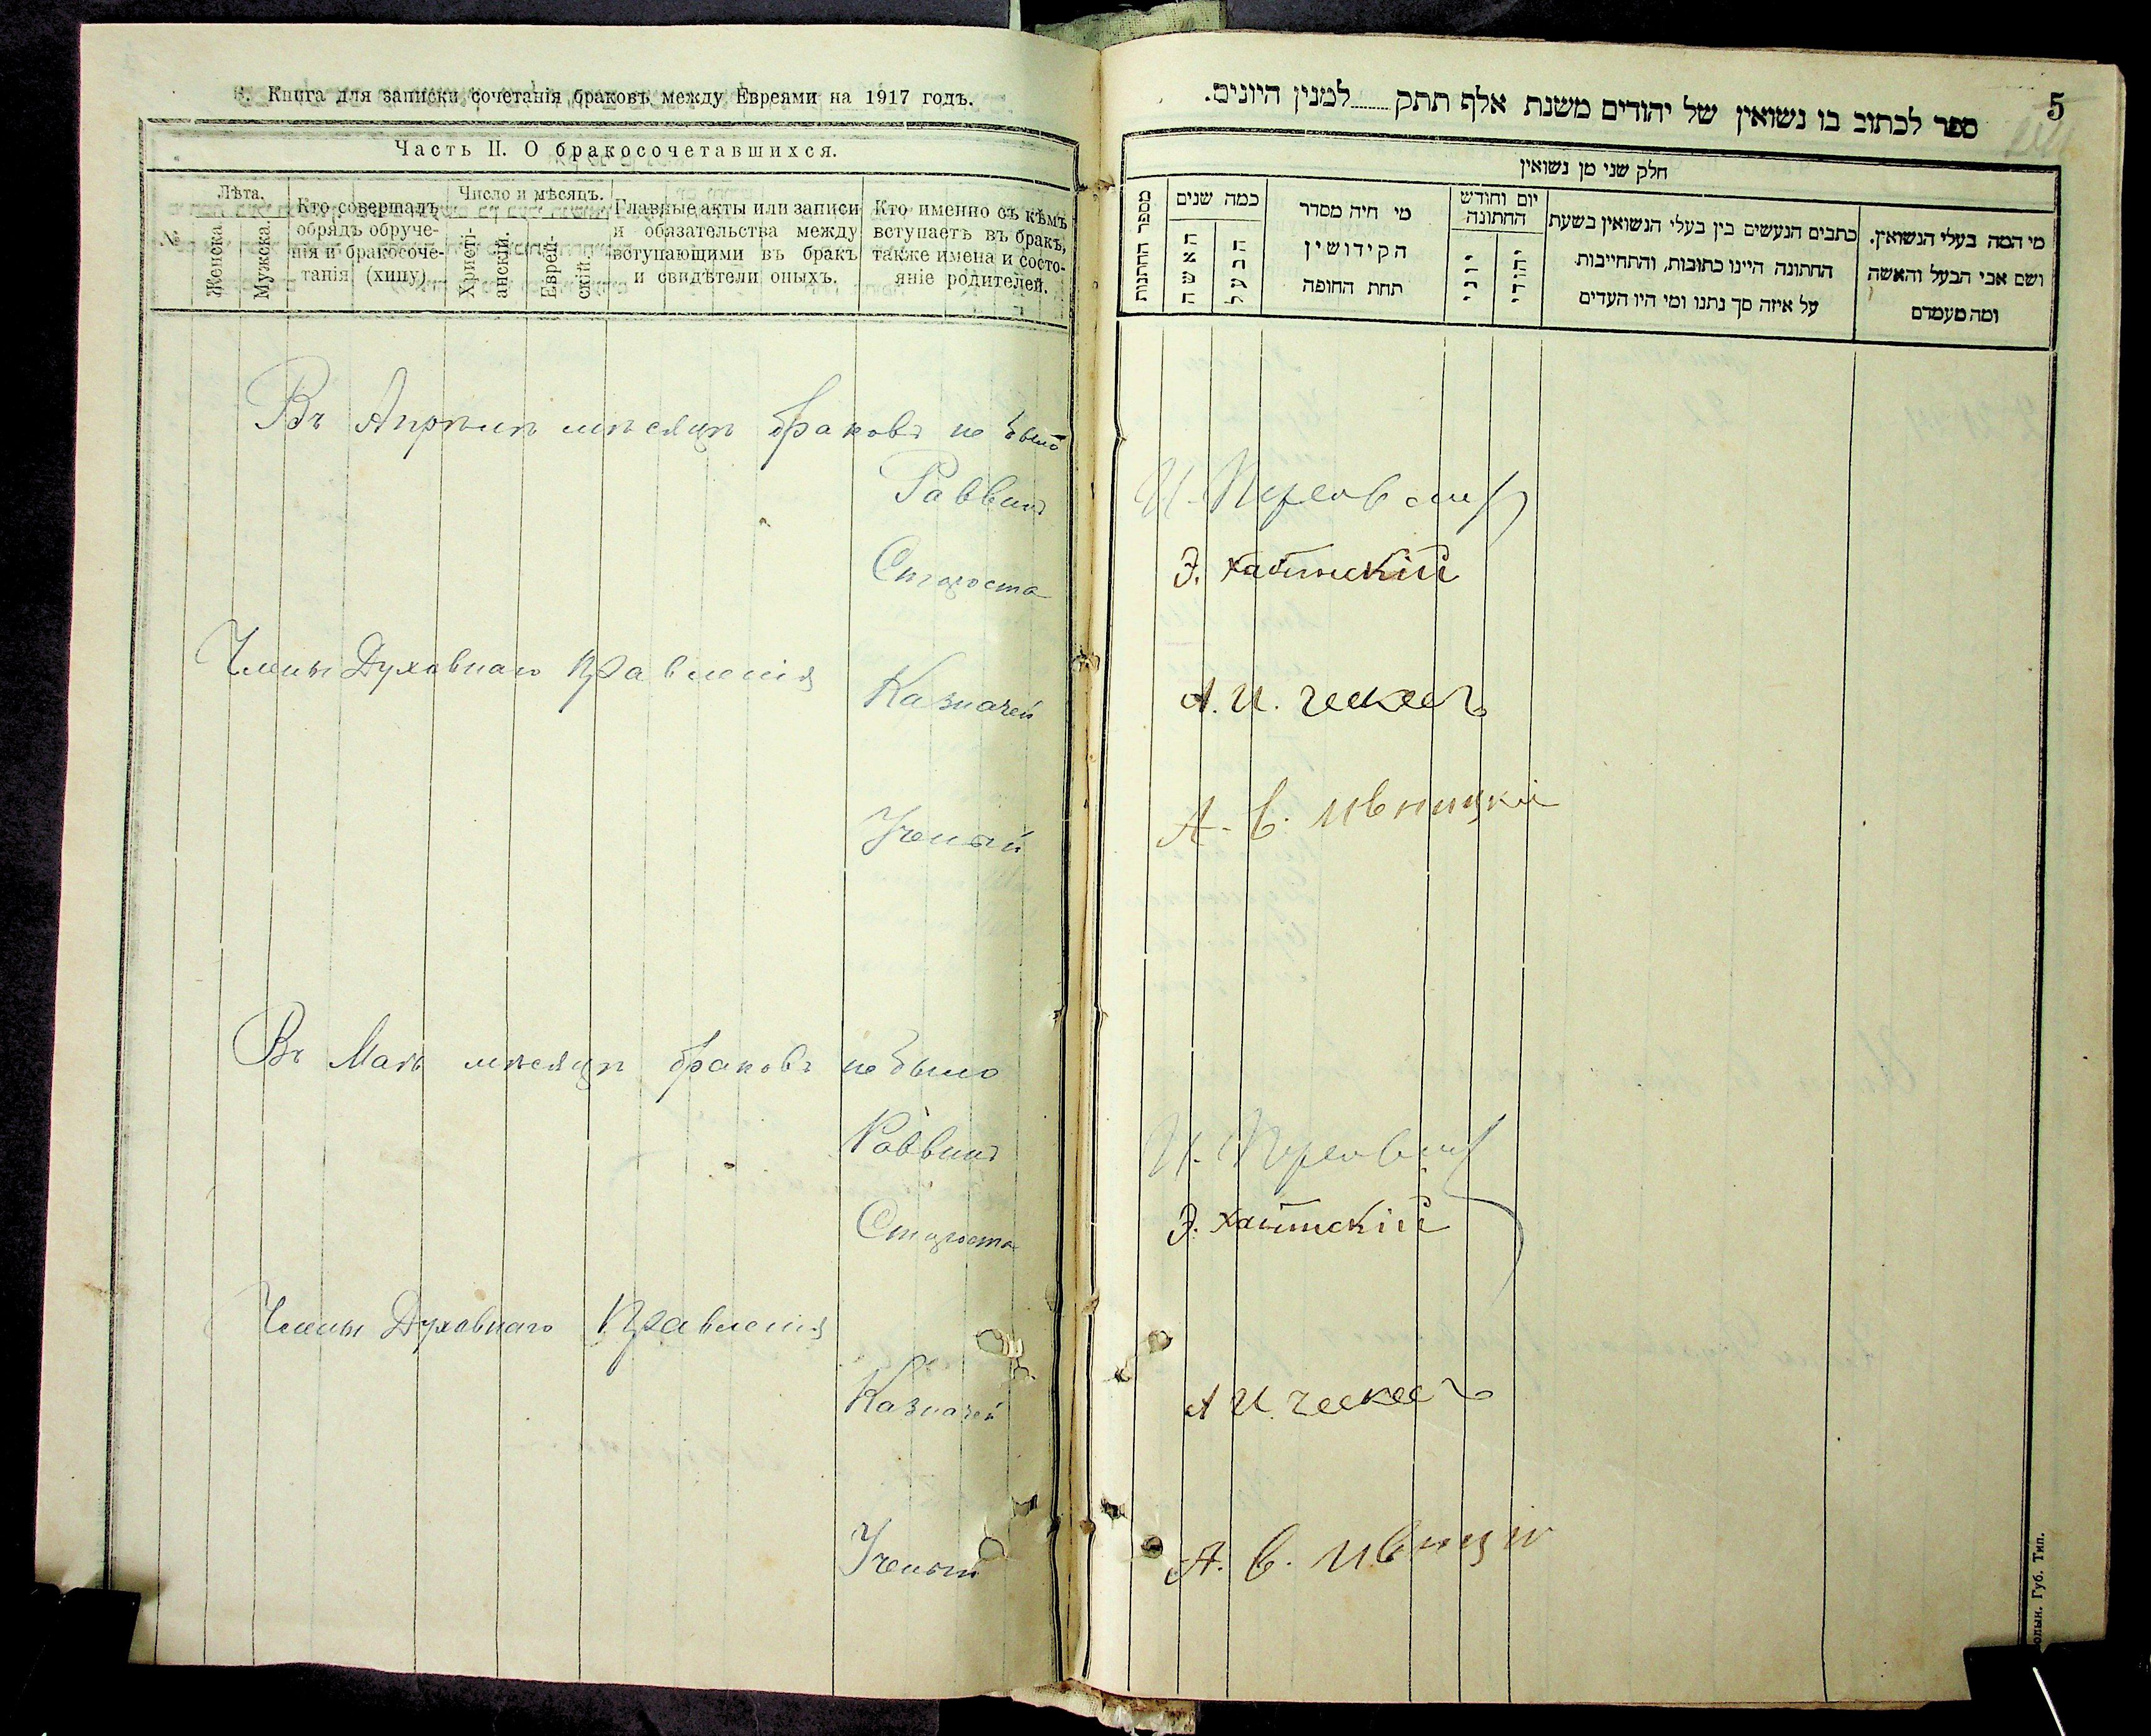 Книга для записки сочетанія браковъ между Евреями на 1917 годъ.
Часть II. О бракосочетавшихся.
№
Лѣта.
Женска.
Мужска.
Кто совершалъ
обрядъ обруче-
нія и бракосоче-
танія (хипу)
Число и мѣсяцъ.
Христі-
анскій.
Еврей-
скій.
Главные акты или записи
и обязательства между
вступающими въ бракъ
и свидѣтели оныхъ.
Кто именно съ кѣмъ
вступаетъ въ бракъ,
также имена и состо-
яніе родителей.
Въ Апрѣлѣ мѣсяцѣ браковъ не было
Раввинъ
Староста
Члены Духовнаго Правленія
Казначей
Ученый
Въ Маѣ мѣсяцѣ браковъ не было
Раввинъ
Староста
Члены Духовнаго Правленія
Казначей
Ученый
5
ספר לכתוב בו נשואין של יהודים משנת אלף תתק........למנין היונים.
חלק שני מן נשואין
מספר החתונות
כמה שנים
האשה
הבעל
מי היה מסדר
הקידושין
תחת החופה
יום וחודש
החתונה
יוני
יהודי
כתבים הנעשים בין בעלי הנשואין בשעת
החתונה היינו כתובות, והתחייבות
על איזה סך נתנו ומי היו העדים
מי המה בעלי הנשואין.
ושם אבי הבעל והאשה
ומה מעמדם
И.
Э.
А. И.
А. В. Ивницкій
И.
Э.
А И.
А. В.
Губ. Тип.